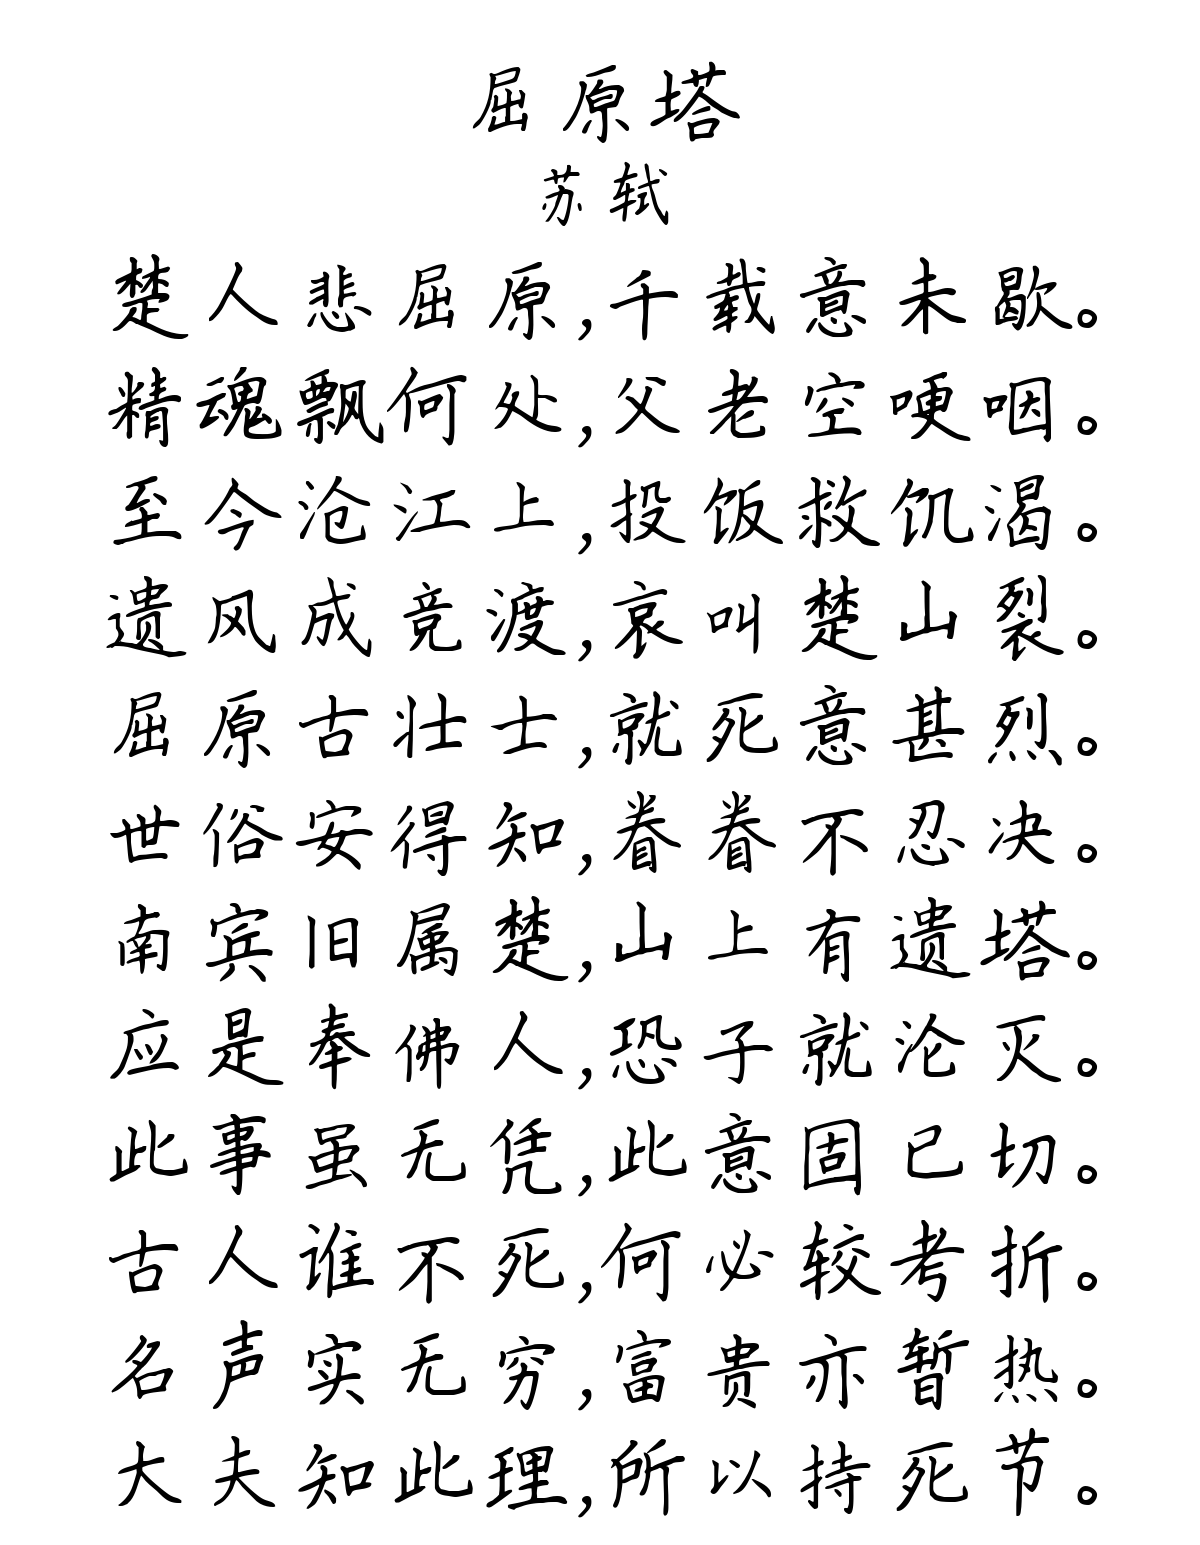 屈原塔
苏轼
楚人悲屈原,千载意未歇。
精魂飘何处,父老空哽咽。
至今沧江上,投饭救饥渴。
遗风成竞渡,哀叫楚山裂。
屈原古壮士,就死意甚烈。
世俗安得知,眷眷不忍决。
南宾旧属楚,山上有遗塔。
应是奉佛人,恐子就沦灭。
此事虽无凭,此意固已切。
古人谁不死,何必较考折。
名声实无穷,富贵亦暂热。
大夫知此理,所以持死节。